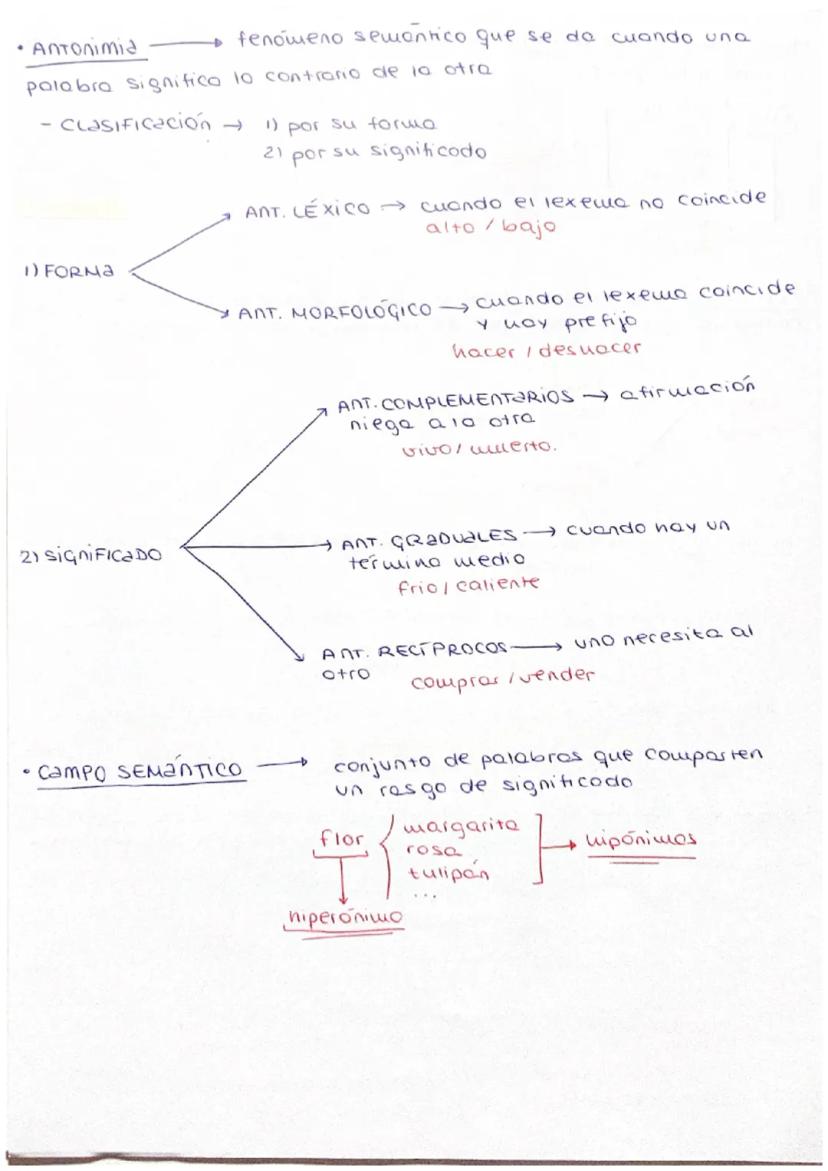 • Antonimia → fenómeno semántico que se da cuando una
palabra significa lo contrario de la otra
- Clasificación → 1) por su forma
2) por su significado
ANT. LÉXICO → cuando el lexema no coincide
alto / bajo
1) FORMA
ANT. MORFOLÓGICO → cuando el lexema coincide
y hay prefijo
hacer / deshacer
ANT. COMPLEMENTARIOS → afirmación
niega a la otra
vivo / muerto.
2) SIGNIFICADO
ANT. GRADUALES → cuando hay un
término medio
frio / caliente
ANT. RECÍPROCOS → uno necesita al
otro
comprar / vender
• CAMPO SEMÁNTICO → conjunto de palabras que comparten
un rasgo de significado
flor { margarita
rosa
tulipán
...
] → hipónimos
hiperónimo